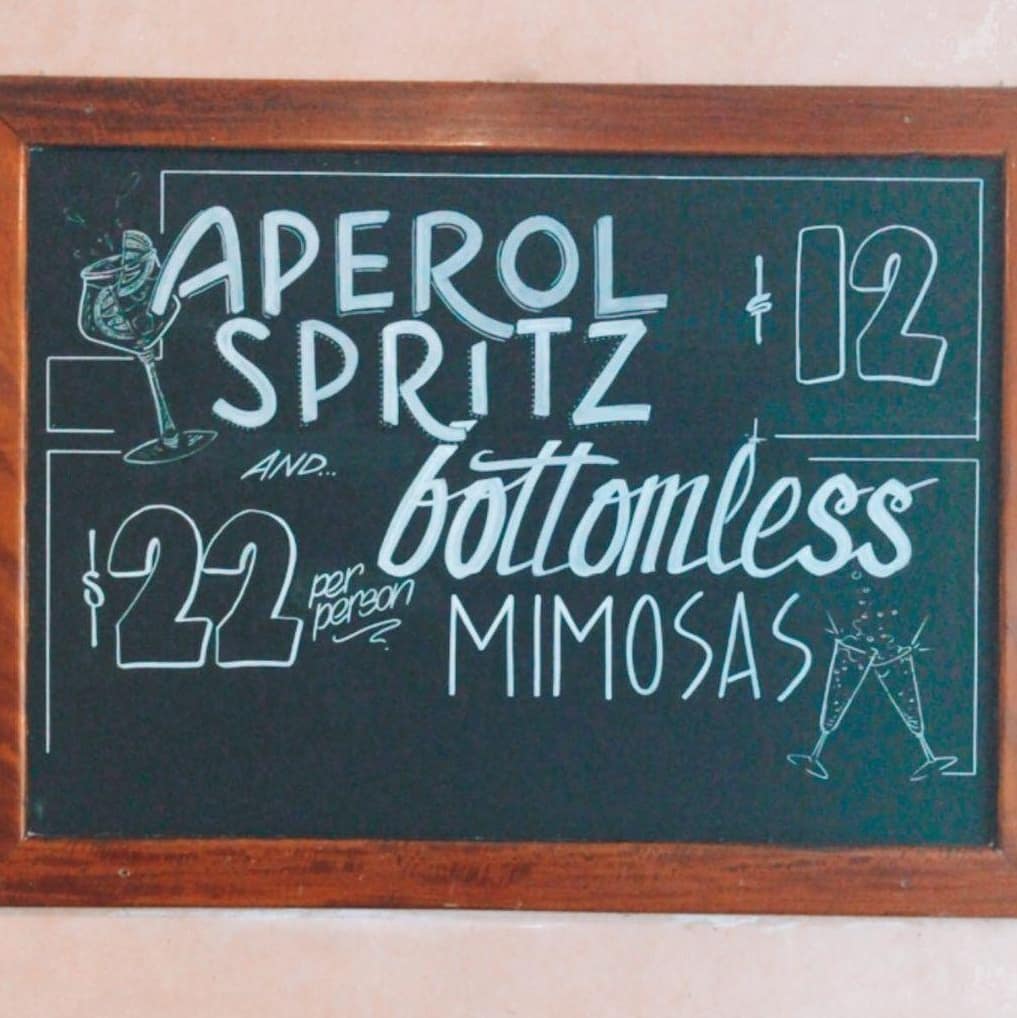 APEROL
SPRITZ
$12
AND...
bottomless
MIMOSAS
$22
per
person